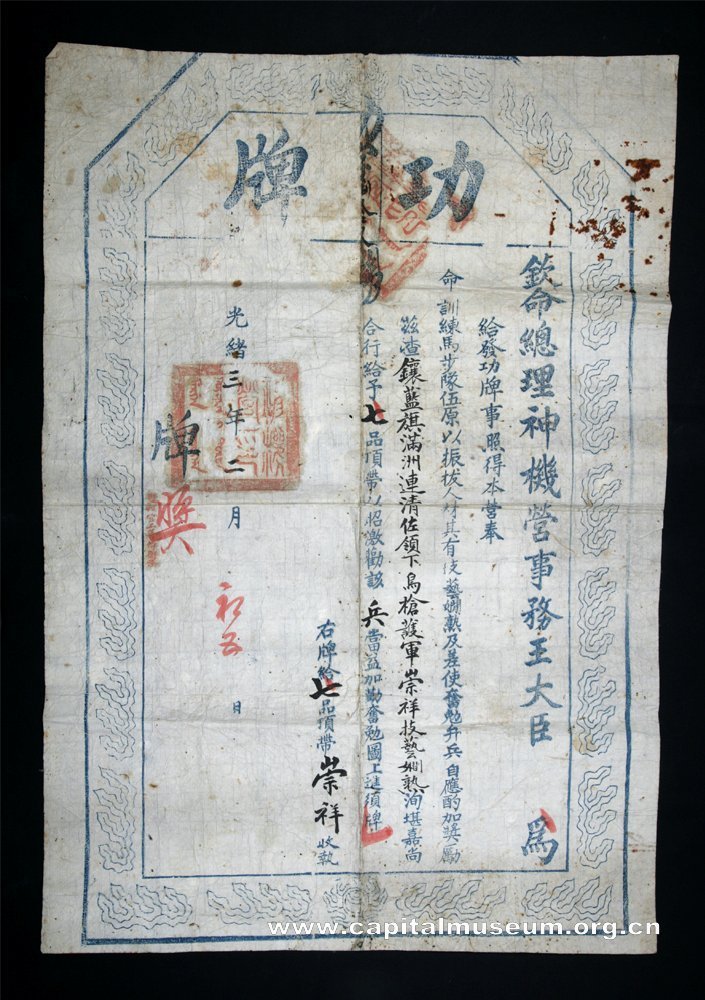 功牌
欽命總理神機營事務王大臣 為
給發功牌事照得本營奉
命訓練馬步隊伍原以振拔人材其有技藝嫻熟及差使奮勉弁兵自應酌加獎勵
茲查鑲藍旗滿洲連清佐領下烏槍護軍崇祥技藝嫻熟洵堪嘉尚
合行給予七品頂帶以昭激勸該兵當益加勤奮勉圖上進須牌
右牌給七品頂帶崇祥收執
光緒三年二月初五日
牌
獎
www.capitalmuseum.org.cn